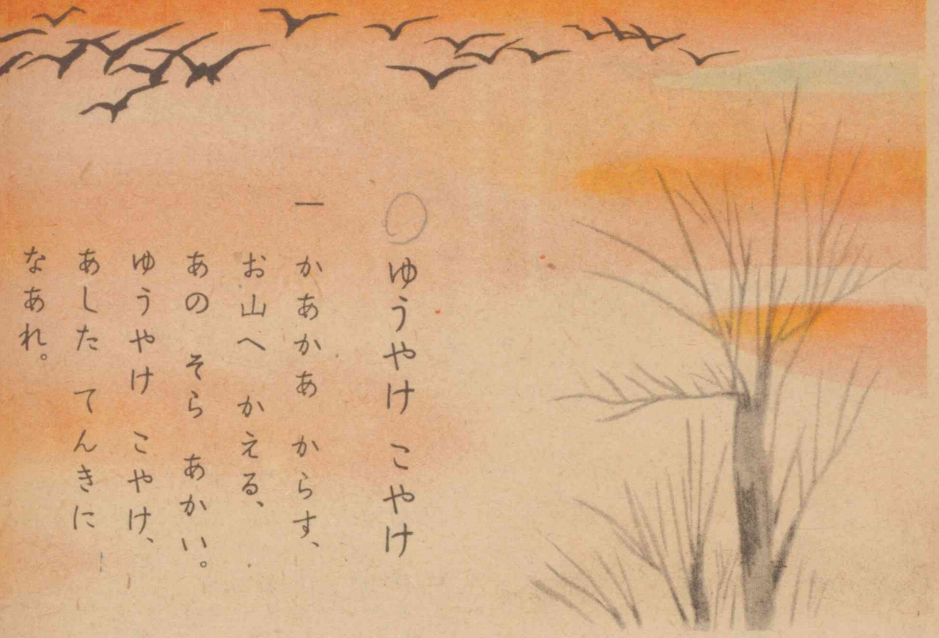 ゆうやけ こやけ
一 かあかあ からす、
お山へ かえる、
あの そら あかい。
ゆうやけ こやけ、
あした てんきに
なあれ。